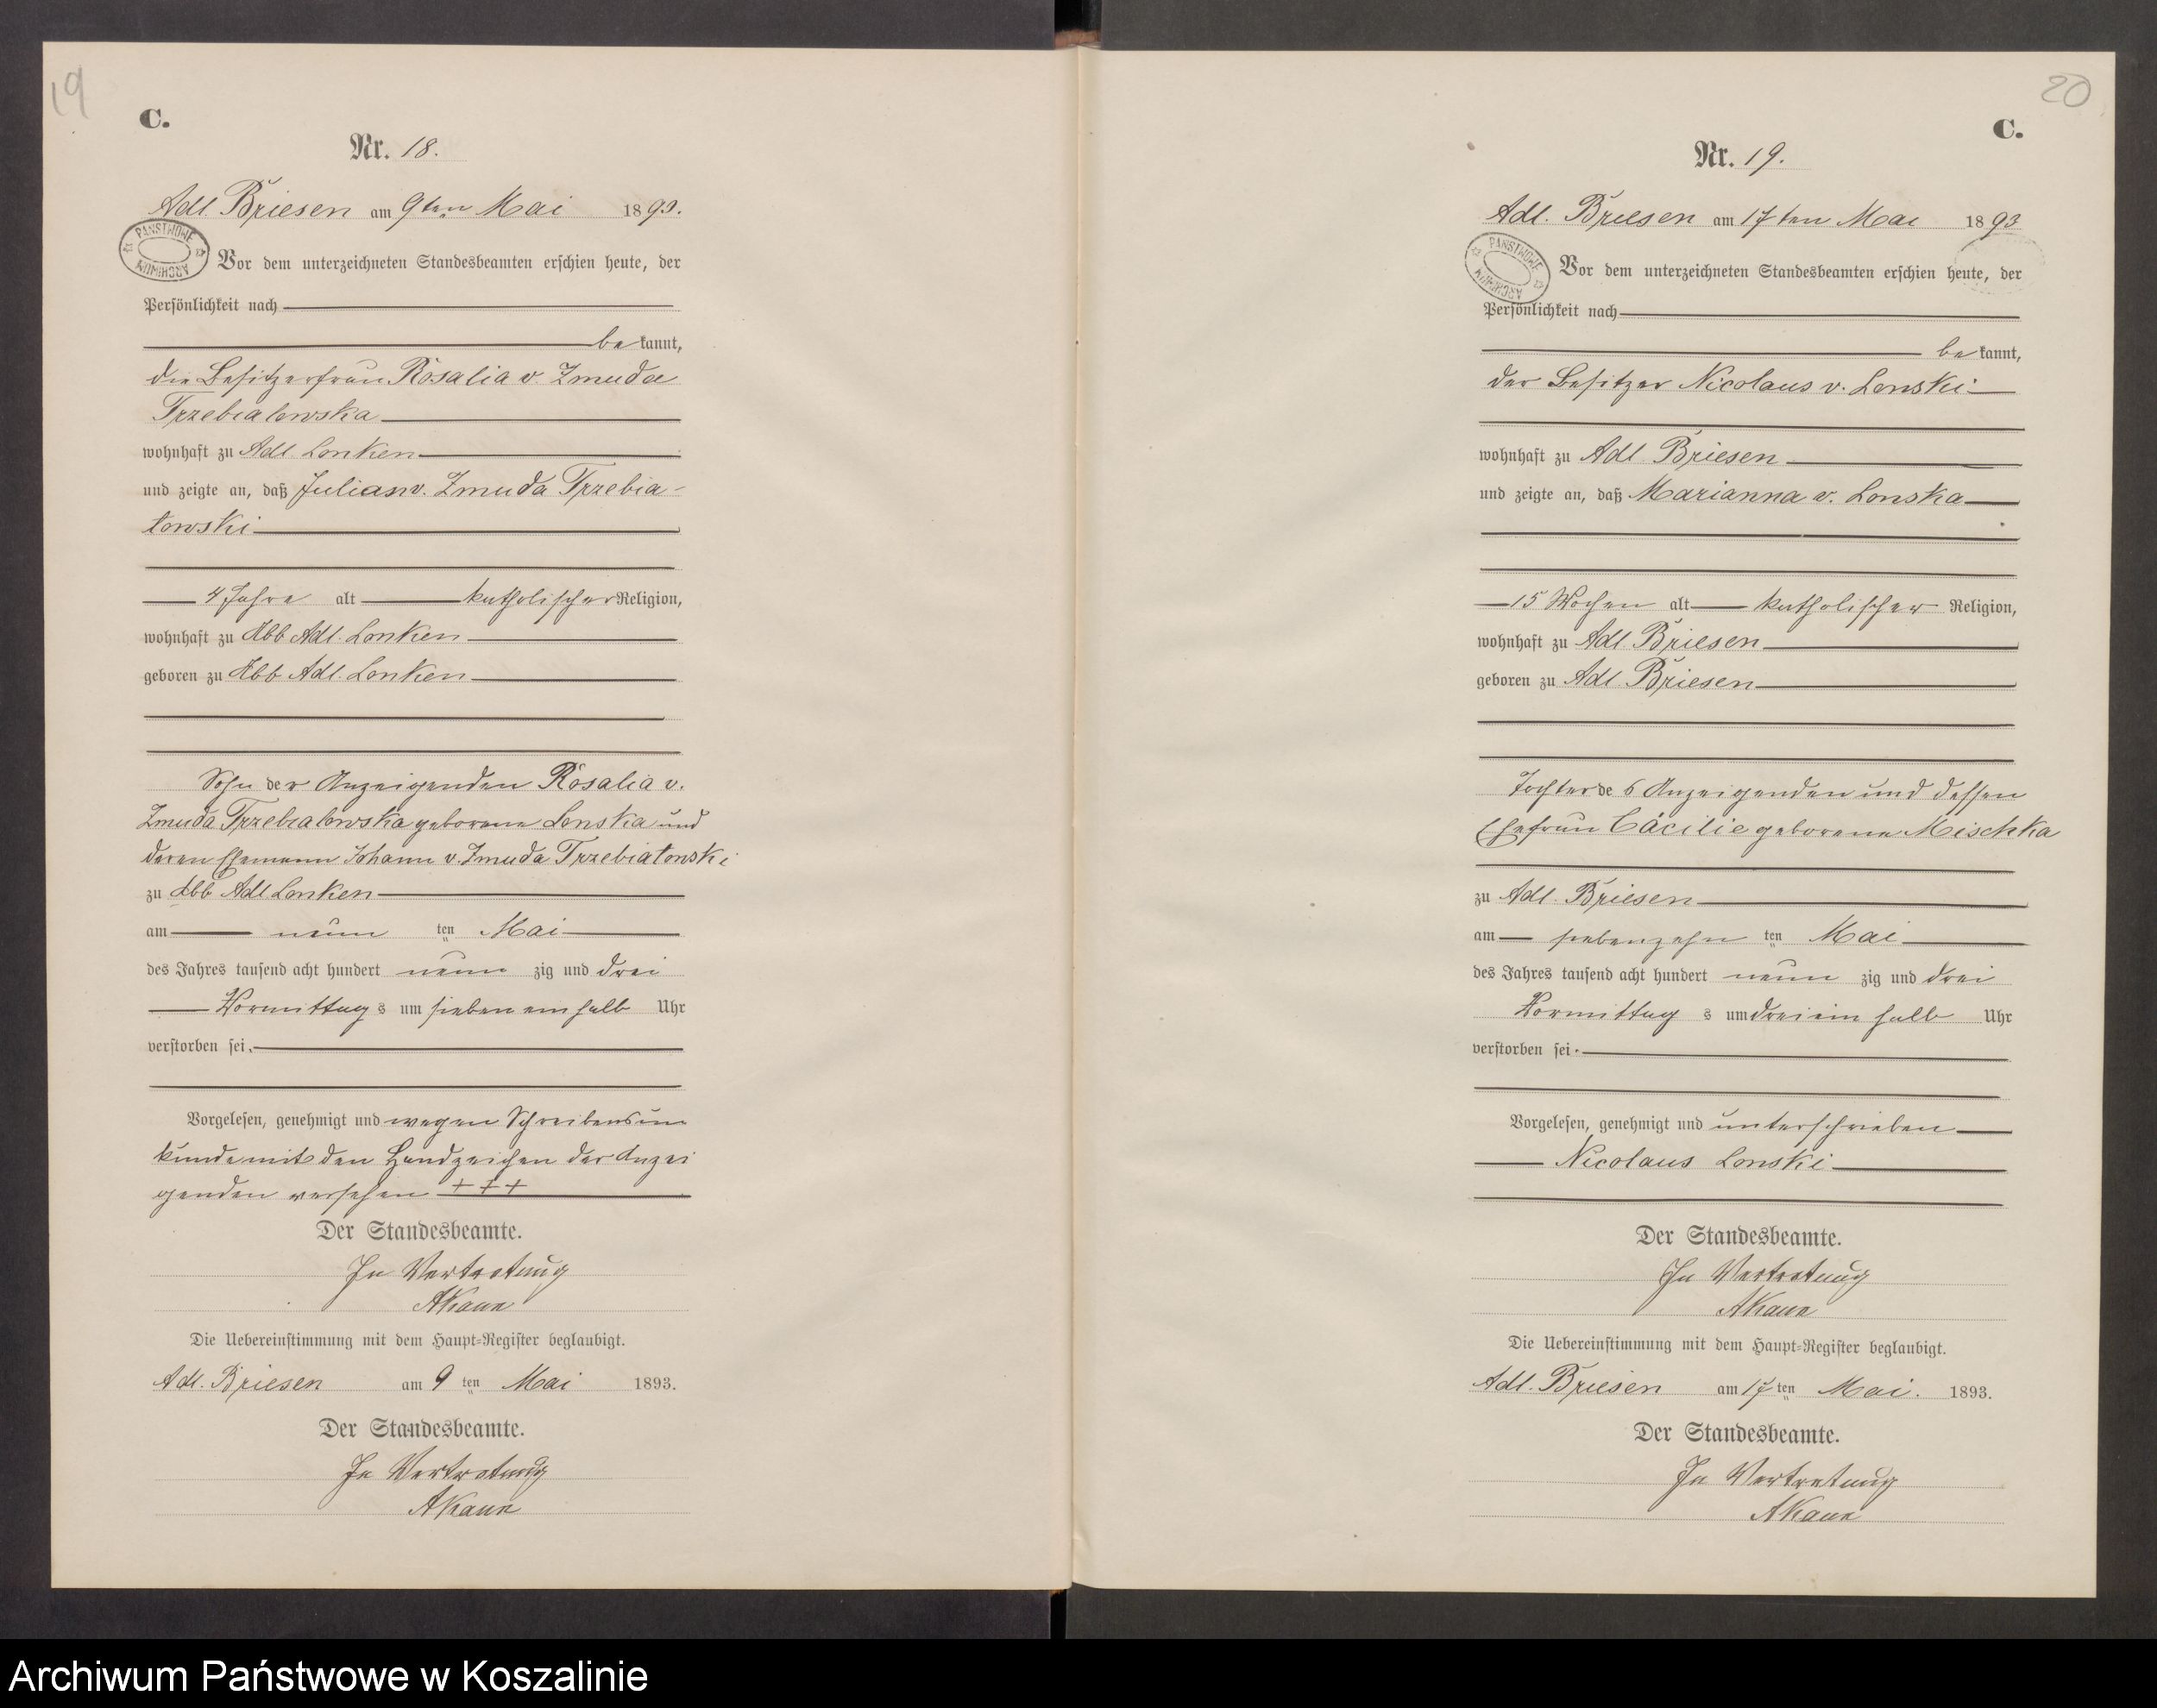 19
C.
Nr. 18.
Adl. Briesen am 9ten Mai 1893.
PAŃSTWOWE ARCHIWUM
Vor dem unterzeichneten Standesbeamten erschien heute, der
Persönlichkeit nach
bekannt,
die Besitzerfrau Rosalia v. Zmuda
Trzebiatowska
wohnhaft zu Adl Lonken
und zeigte an, daß Julian v. Zmuda Trzebia-
towski
4 Jahre alt katholischer Religion,
wohnhaft zu Abb Adl. Lonken
geboren zu Abb Adl. Lonken
Sohn der Anzeigenden Rosalia v.
Zmuda Trzebiatowska geborene Lonska und
deren Ehemann Johann v. Zmuda Trzebiatowski
zu Abb Adl Lonken
am neun ten Mai
des Jahres tausend acht hundert neun zig und drei
Vormittags um sieben ein halb Uhr
verstorben sei.
Vorgelesen, genehmigt und wegen Schreibensun
kunde mit den Handzeichen der Anzei
genden versehen +++
Der Standesbeamte.
In Vertretung
Die Uebereinstimmung mit dem Haupt-Register beglaubigt.
Adl. Briesen am 9 ten Mai 1893.
Der Standesbeamte.
In Vertretung
20
C.
Nr. 19.
Adl. Briesen am 17ten Mai 1893
PAŃSTWOWE ARCHIWUM
Vor dem unterzeichneten Standesbeamten erschien heute, der
Persönlichkeit nach
bekannt,
der Besitzer Nicolaus v. Lonski
wohnhaft zu Adl. Briesen
und zeigte an, daß Marianna v. Lonska
15 Wochen alt katholischer Religion,
wohnhaft zu Adl. Briesen
geboren zu Adl. Briesen
Tochter des Anzeigenden und dessen
Ehefrau Cäcilie geborene Mischka
zu Adl. Briesen
am siebenzehn ten Mai
des Jahres tausend acht hundert neun zig und drei
Vormittag s um drei ein halb Uhr
verstorben sei.
Vorgelesen, genehmigt und unterschrieben
Nicolaus Lonski
Der Standesbeamte.
In Vertretung
Die Uebereinstimmung mit dem Haupt-Register beglaubigt.
Adl. Briesen am 17 ten Mai. 1893.
Der Standesbeamte.
In Vertretung
Archiwum Państwowe w Koszalinie